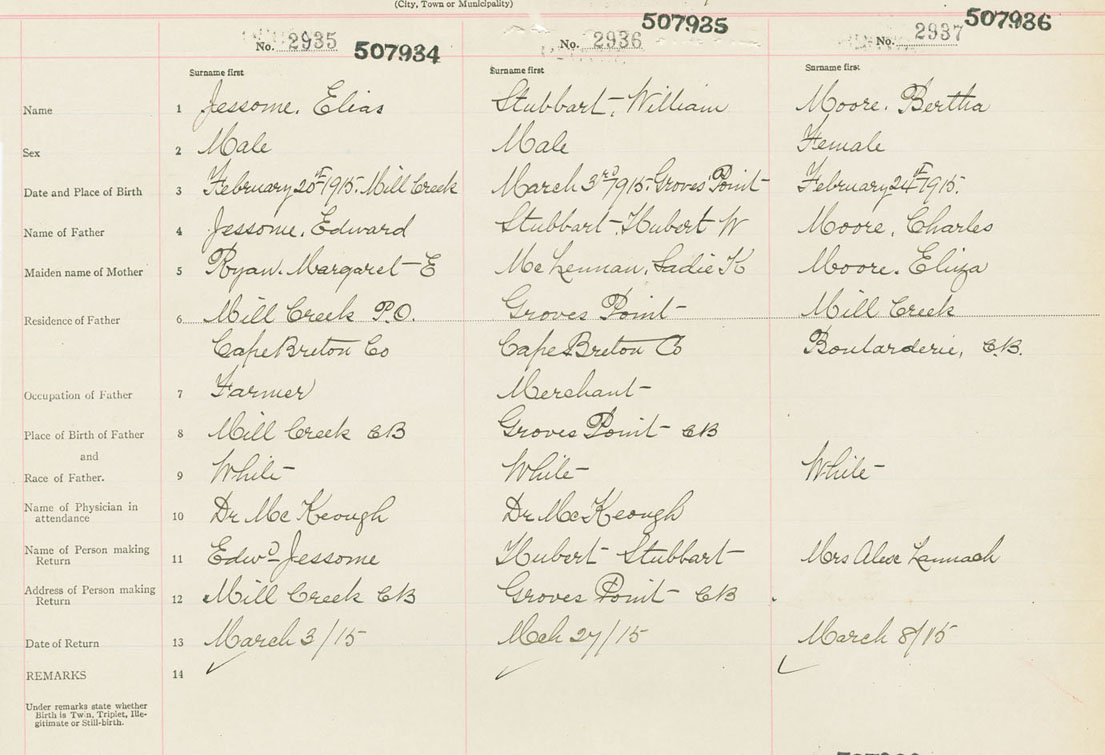 (City, Town or Municipality)
No. 2935 507934 No. 2936 507935 No. 2937 507936
Surname first Surname first Surname first
Name 1 Jessome, Elias Stubbart, William Moore, Bertha
Sex 2 Male Male Female
Date and Place of Birth 3 February 20th 1915. Mill Creek March 3rd 1915. Groves Point February 24th 1915.
Name of Father 4 Jessome, Edward Stubbart, Hubert W Moore, Charles
Maiden name of Mother 5 Ryan. Margaret E McLennan, Sadie K Moore. Eliza
Residence of Father 6 Mill Creek P.O. Groves Point Mill Creek
Cape Breton Co Cape Breton Co Boularderie, C.B.
Occupation of Father 7 Farmer Merchant
Place of Birth of Father 8 Mill Creek CB Groves Point CB
and
Race of Father. 9 White White White
Name of Physician in
attendance 10 Dr McKeough Dr McKeough
Name of Person making
Return 11 Edwd Jessome Hubert Stubbart Mrs Alex
Address of Person making
Return 12 Mill Creek CB Groves Point CB
Date of Return 13 March 3/15 Mch 27/15 March 8/15
REMARKS 14
Under remarks state whether
Birth is Twin, Triplet, Ille-
gitimate or Still-birth.